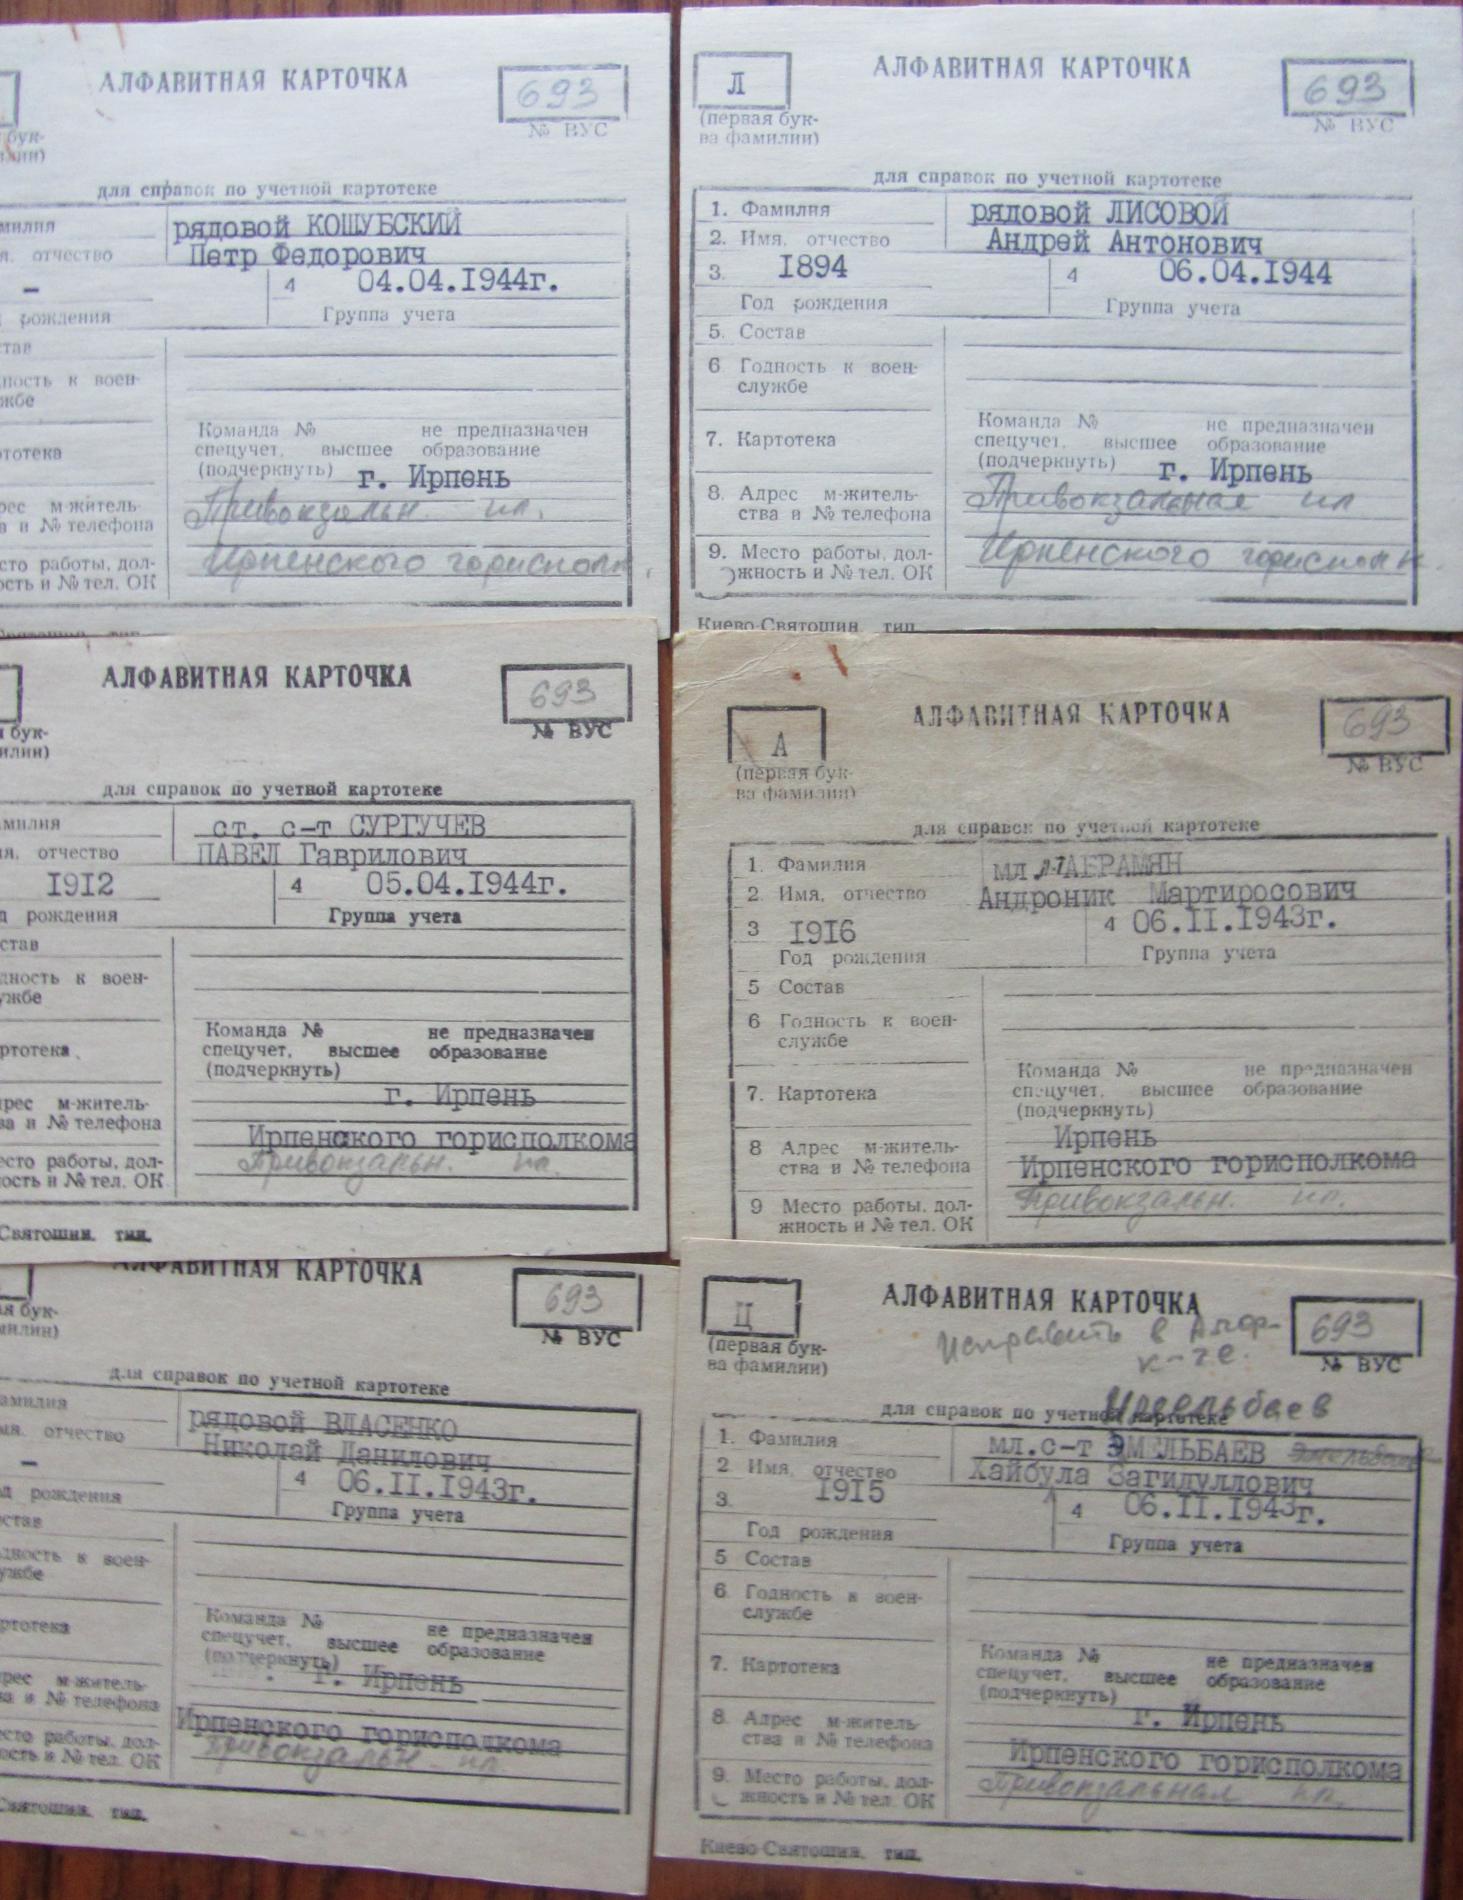 АЛФАВИТНАЯ КАРТОЧКА
693
№ ВУС
бук-
для справок по учетной картотеке
рядовой КОШУБСКИЙ
отчество
Петр Федорович
–
4
04.04.1944г.
рождения
Группа учета
Команда № не предназначен
спецучет, высшее образование
(подчеркнуть)
г. Ирпень
м-житель-
и № телефона
Привокзальн. пл.
работы, дол-
и № тел. ОК
Ирпенского горисполк.
Л
АЛФАВИТНАЯ КАРТОЧКА
693
№ ВУС
(первая бук-
ва фамилии)
для справок по учетной картотеке
1. Фамилия
рядовой ЛИСОВОЙ
2. Имя, отчество
Андрей Антонович
3. 1894
4
06.04.1944
Год рождения
Группа учета
5. Состав
6 Годность к воен-
службе
7. Картотека
Команда № не предназначен
спецучет, высшее образование
(подчеркнуть)
г. Ирпень
8. Адрес м-житель-
ства и № телефона
Привокзальная пл
9. Место работы, дол-
жность и № тел. ОК
Ирпенского горисполк.
Киево-Святошин. тип.
АЛФАВИТНАЯ КАРТОЧКА
693
№ ВУС
бук-
для справок по учетной картотеке
ст. с-т СУРГУЧЕВ
отчество
ПАВЕЛ Гаврилович
1912
4
05.04.1944г.
рождения
Группа учета
к воен-
Команда № не предназначен
спецучет, высшее образование
(подчеркнуть)
м-житель-
и № телефона
г. Ирпень
Ирпенского горисполкома
работы, дол-
и № тел. ОК
Привокзальн. пл.
Святошин. тип.
А
АЛФАВИТНАЯ КАРТОЧКА
693
№ ВУС
(первая бук-
ва фамилии)
для справок по учетной картотеке
1. Фамилия
мл л-т АБРАМЯН
2 Имя, отчество
Андроник Мартиросович
3 1916
4 06.II.1943г.
Год рождения
Группа учета
5 Состав
6 Годность к воен-
службе
7. Картотека
Команда № не предназначен
спецучет, высшее образование
(подчеркнуть)
Ирпень
8 Адрес м-житель-
ства и № телефона
Ирпенского горисполкома
9 Место работы, дол-
жность и № тел. ОК
Привокзальн. пл.
АЛФАВИТНАЯ КАРТОЧКА
693
№ ВУС
бук-
для справок по учетной картотеке
рядовой ВЛАСЕНКО
отчество
Николай Данилович
–
4 06.II.1943г.
рождения
Группа учета
к воен-
Команда № не предназначен
спецучет, высшее образование
(подчеркнуть)
г. Ирпень
м-житель-
и № телефона
Ирпенского горисполкома
работы, дол-
и № тел. ОК
Привокзальн. пл.
Святошин. тип.
Ц
АЛФАВИТНАЯ КАРТОЧКА
693
№ ВУС
(первая бук-
ва фамилии)
Исправить в Алф.
к-те.
для справок по учетной картотеке
1. Фамилия
мл.с-т ЭМЕЛЬБАЕВ
2 Имя, отчество
Хайбула Загидуллович
3. 1915
4 06.II.1943г.
Год рождения
Группа учета
5 Состав
6. Годность к воен-
службе
7. Картотека
Команда № не предназначен
спецучет, высшее образование
(подчеркнуть)
г. Ирпень
8. Адрес м-житель-
ства и № телефона
Ирпенского горисполкома
9. Место работы, дол-
жность и № тел. ОК
Привокзальная пл.
Киево-Святошин. тип.